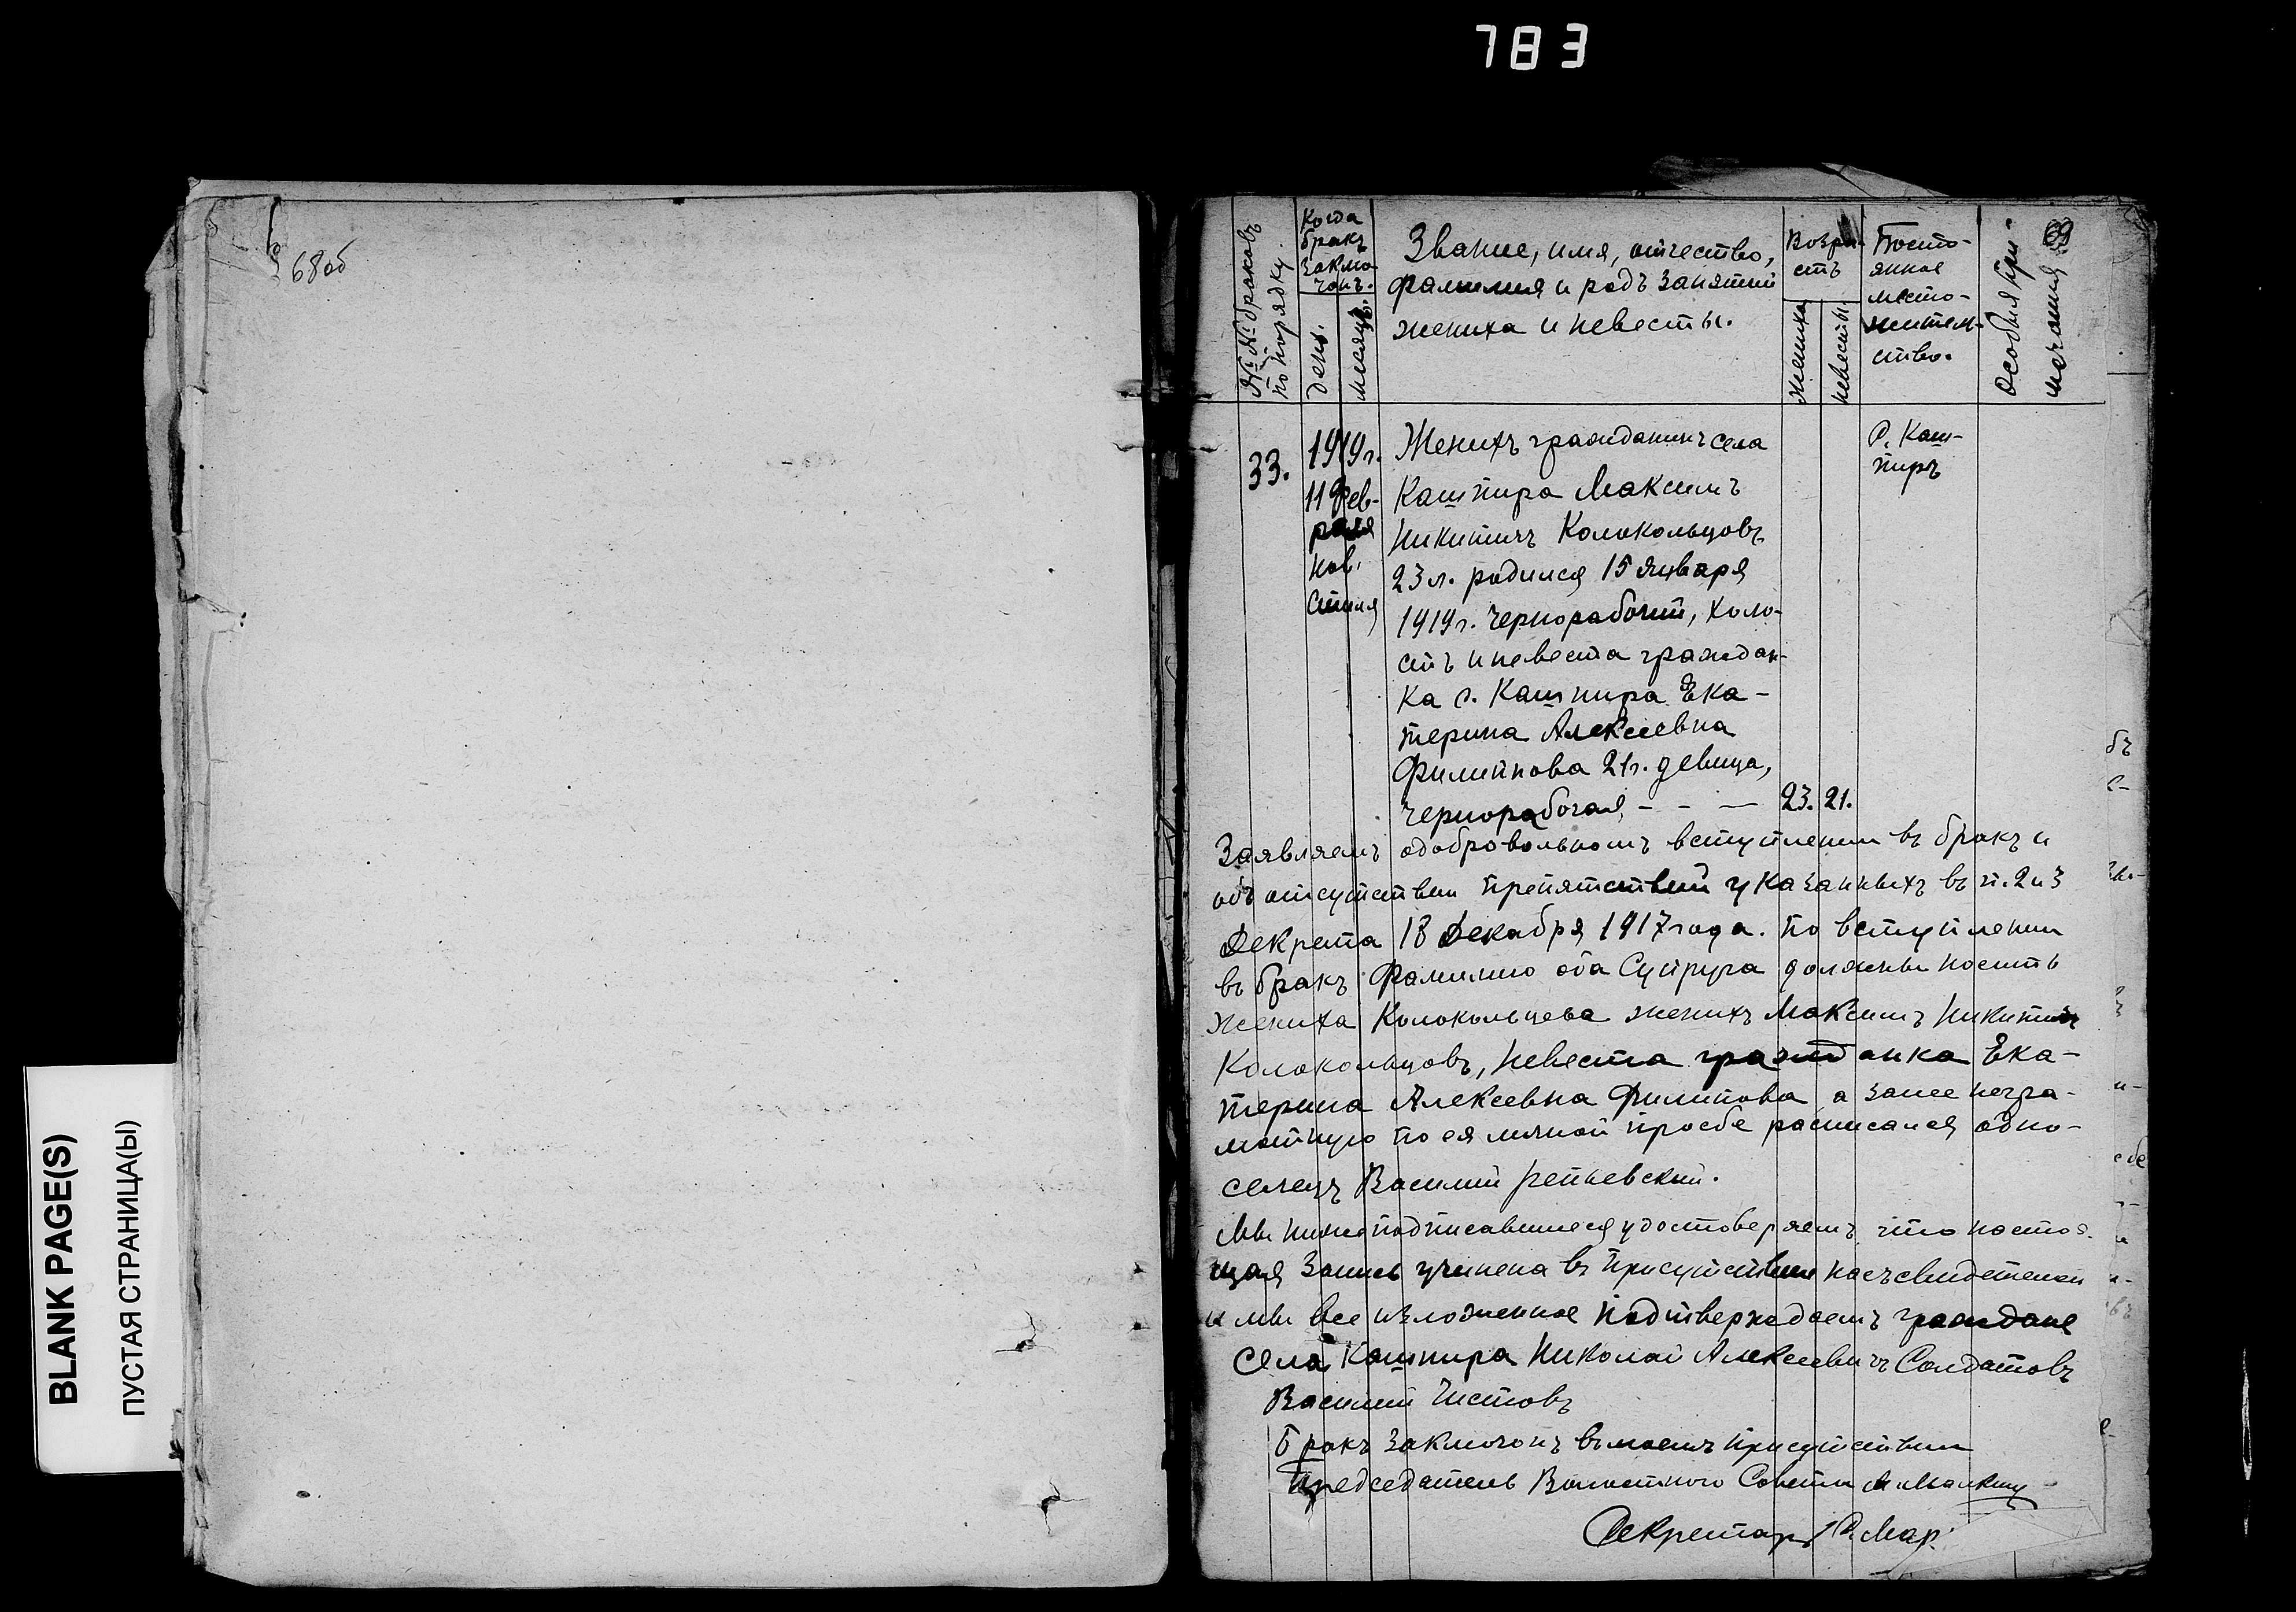 783
68об
BLANK PAGE(S)
ПУСТАЯ СТРАНИЦА(Ы)
69
№ № браковъ
по порядку.
Когда
бракъ
заклю-
чонъ.
день.
месяцъ.
Звание, имя, отчество,
фамилия и родъ занятий
жениха и невесты.
Возра-
стъ
жениха
невесты
Посто-
янное
место-
житель-
ство.
Особыя при-
мечания
33.
1919 г.
11 Фев-
раля
нов.
стиля
Женихъ гражданинъ села
Кашпира Максимъ
Никитичъ Колокольцовъ
23 л. родился 15 января
1919 г. Чернорабочий, холо-
стъ и невеста граждан-
ка с. Кашпира Ека-
терина Алексеевна
Филипова 21 г. девица,
Чернорабочая, - - —
23. 21.
С. Каш-
пиръ
Заявляемъ одобровольномъ вступлении въ бракъ и
объ отсутствии препятствий указанныхъ въ п. 2 и 3
Декрета 18 Декабря 1917 года. По вступлении
въ бракъ фамилию оба Супруга должны носить
жениха Колокольцева женихъ Максимъ Никитичъ
Колокольцовъ, Невеста гражданка Ека-
терина Алексеевна Филипова а занее негра-
мотную по ея личной просбе расписался одно-
селецъ Василий Репьевский.
Мы нижеподписавшиеся удостоверяемъ что настоя-
щая Запись учинена въ присутствии насъ свидетелей
и мы все изложенное подтверждаемъ граждане
села Кашпира Николай Алексеевичъ Солдатовъ
Василий Чистовъ
Бракъ заключонъ вмоемъ присутствии
Председатель Волостного Совета
Секретарь С. Мар.